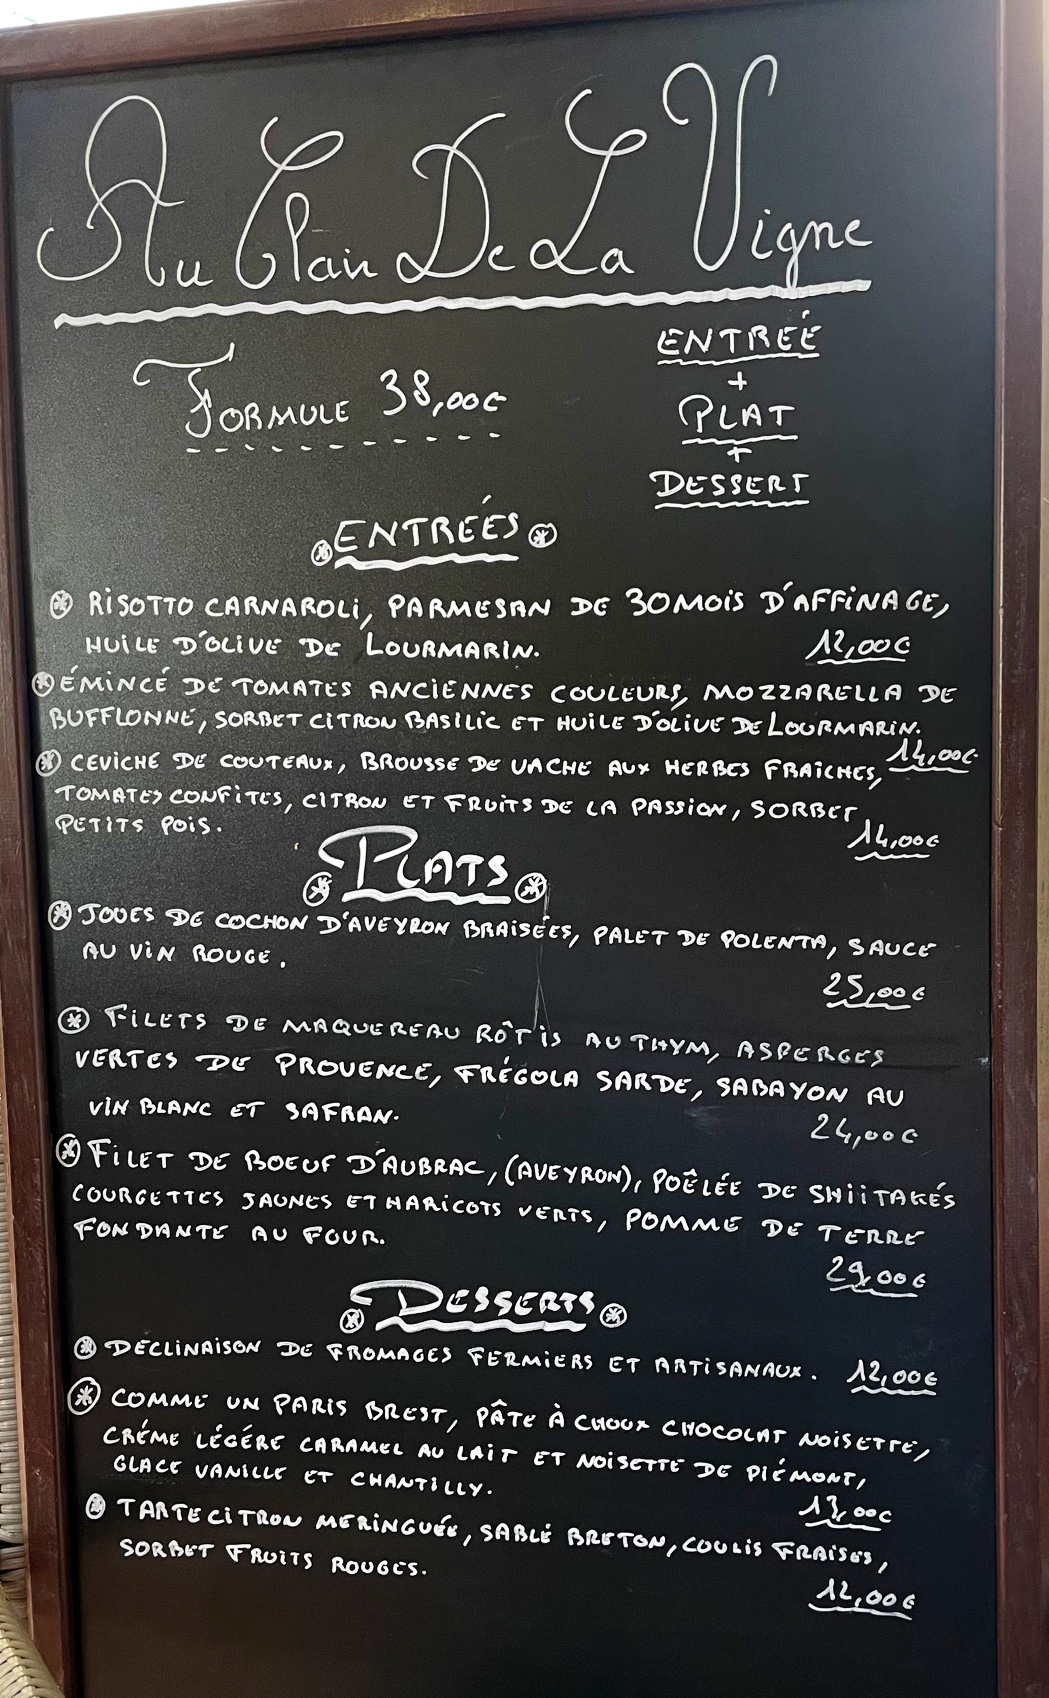 Au Clair De La Vigne
FORMULE 38,00€
ENTREÉ
+
PLAT
+
DESSERT
ENTREÉS
RISOTTO CARNAROLI, PARMESAN DE 30 MOIS D'AFFINAGE,
HUILE D'OLIVE DE LOURMARIN. 12,00€
ÉMINCÉ DE TOMATES ANCIENNES COULEURS, MOZZARELLA DE
BUFFLONNE, SORBET CITRON BASILIC ET HUILE D'OLIVE DE LOURMARIN.
14,00€
CEVICHE DE COUTEAUX, BROUSSE DE VACHE AUX HERBES FRAÎCHES,
TOMATES CONFITES, CITRON ET FRUITS DE LA PASSION, SORBET
PETITS POIS. 14,00€
PLATS
JOUES DE COCHON D'AVEYRON BRAISÉES, PALET DE POLENTA, SAUCE
AU VIN ROUGE.
25,00€
FILETS DE MAQUEREAU RÔTIS AU THYM, ASPERGES
VERTES DE PROVENCE, FRÉGOLA SARDE, SABAYON AU
VIN BLANC ET SAFRAN. 24,00€
FILET DE BOEUF D'AUBRAC, (AVEYRON), POÊLÉE DE SHIITAKÉS
COURGETTES JAUNES ET HARICOTS VERTS, POMME DE TERRE
FONDANTE AU FOUR.
29,00€
DESSERTS
DÉCLINAISON DE FROMAGES FERMIERS ET ARTISANAUX. 12,00€
COMME UN PARIS BREST, PÂTE À CHOUX CHOCOLAT NOISETTE,
CRÉME LÉGÉRE CARAMEL AU LAIT ET NOISETTE DE PIÉMONT,
GLACE VANILLE ET CHANTILLY.
13,00€
TARTE CITRON MERINGUÉE, SABLÉ BRETON, COULIS FRAISES,
SORBET FRUITS ROUGES.
12,00€